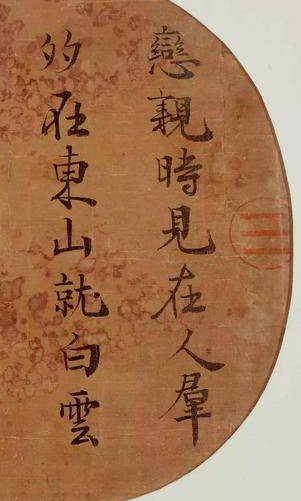 戀親時見在人羣
多在東山就白雲